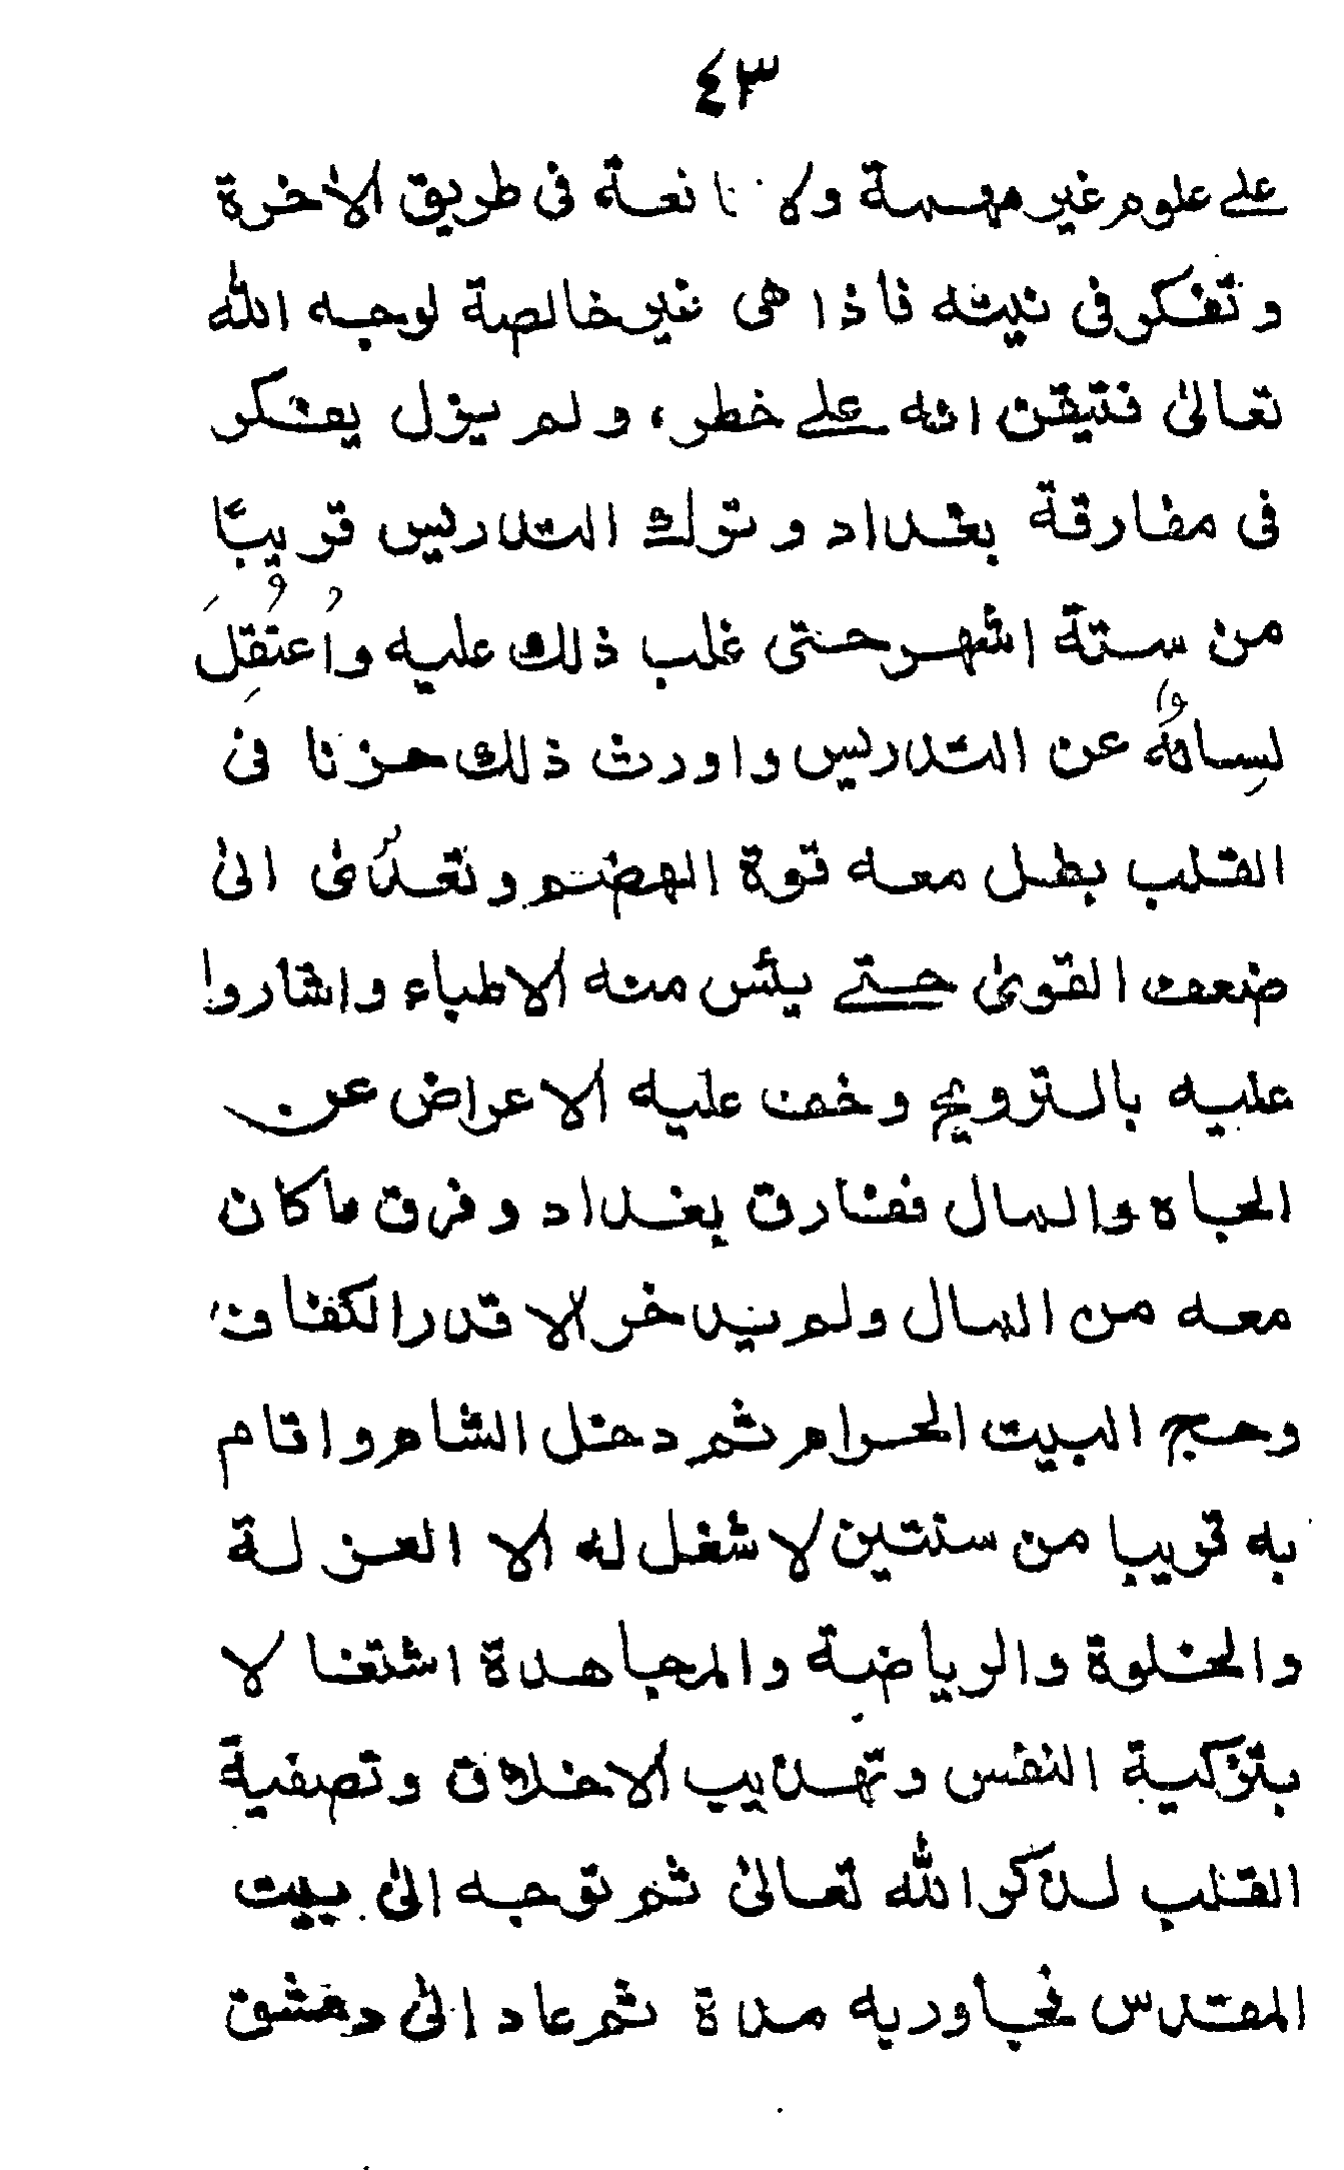 ٤٣
على علوم غير مهمة ولا نافعة فى طريق الاخرة
وتفكر فى نيته فاذا هى غير خالصة لوجه الله
تعالىٰ فتيقن انه على خطر، ولم يزل يفتكر
فى مفارقة بغداد وترك التدريس قريبًا
من ستة اشهر حتى غلب ذلك عليه واُعتُقِلَ
لِسانُه عن التدريس واورث ذلك حزنا فى
القلب بطل معه قوة الهضم وتعدّى الىٰ
ضعف القوىٰ حتى يئس منه الاطباء واشاروا
عليه بالترويح وخف عليه الاعراض عن
الجاه والمال ففارق بغداد وفرق ما كان
معه من المال ولم يدخر الا قدر الكفاف
وحج البيت الحرام ثم دخل الشام واقام
به قريبا من سنتين لا شغل له الا العزلة
والخلوة والرياضة والمجاهدة اشتغالا
بتزكية النفس وتهذيب الاخلاق وتصفية
القلب لذكر الله تعالىٰ ثم توجه الىٰ بيت
المقدس فجاور به مدة ثم عاد إلىٰ دمشق